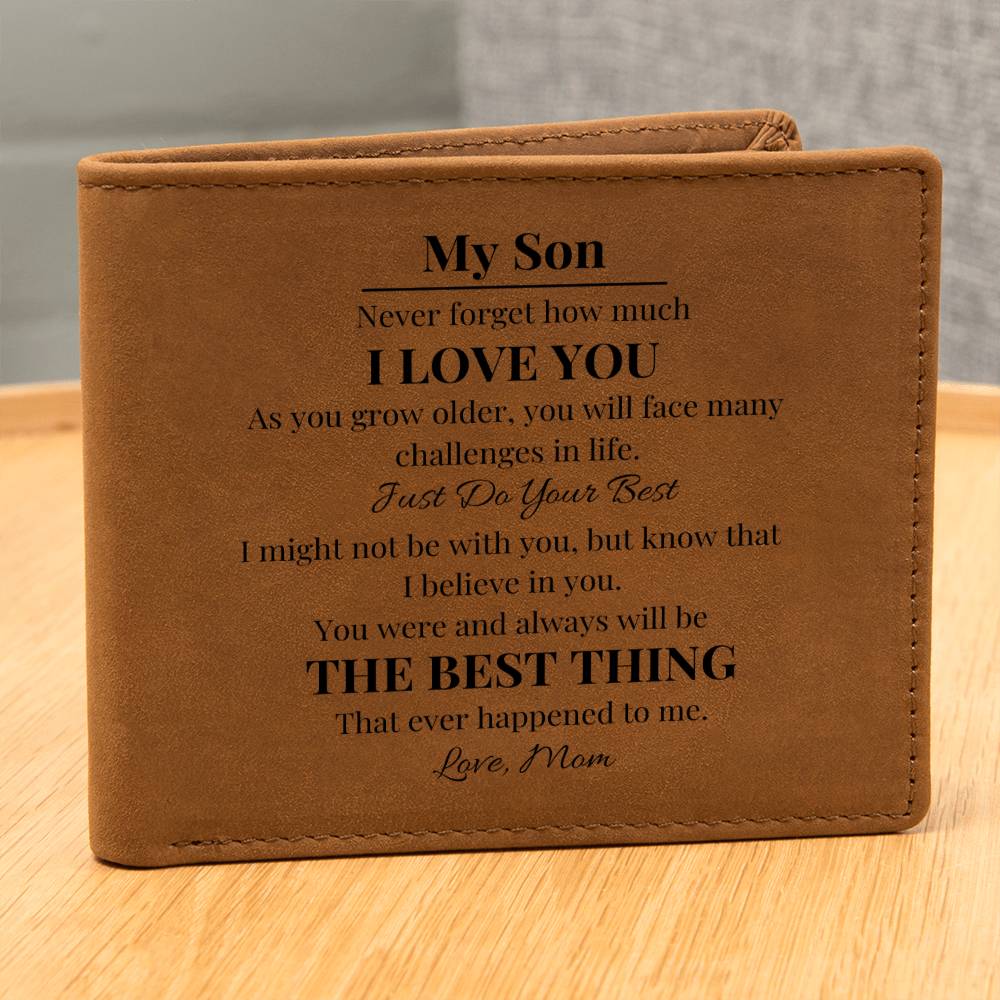 My Son
Never forget how much
I LOVE YOU
As you grow older, you will face many
challenges in life.
Just Do Your Best
I might not be with you, but know that
I believe in you.
You were and always will be
THE BEST THING
That ever happened to me.
Love, Mom